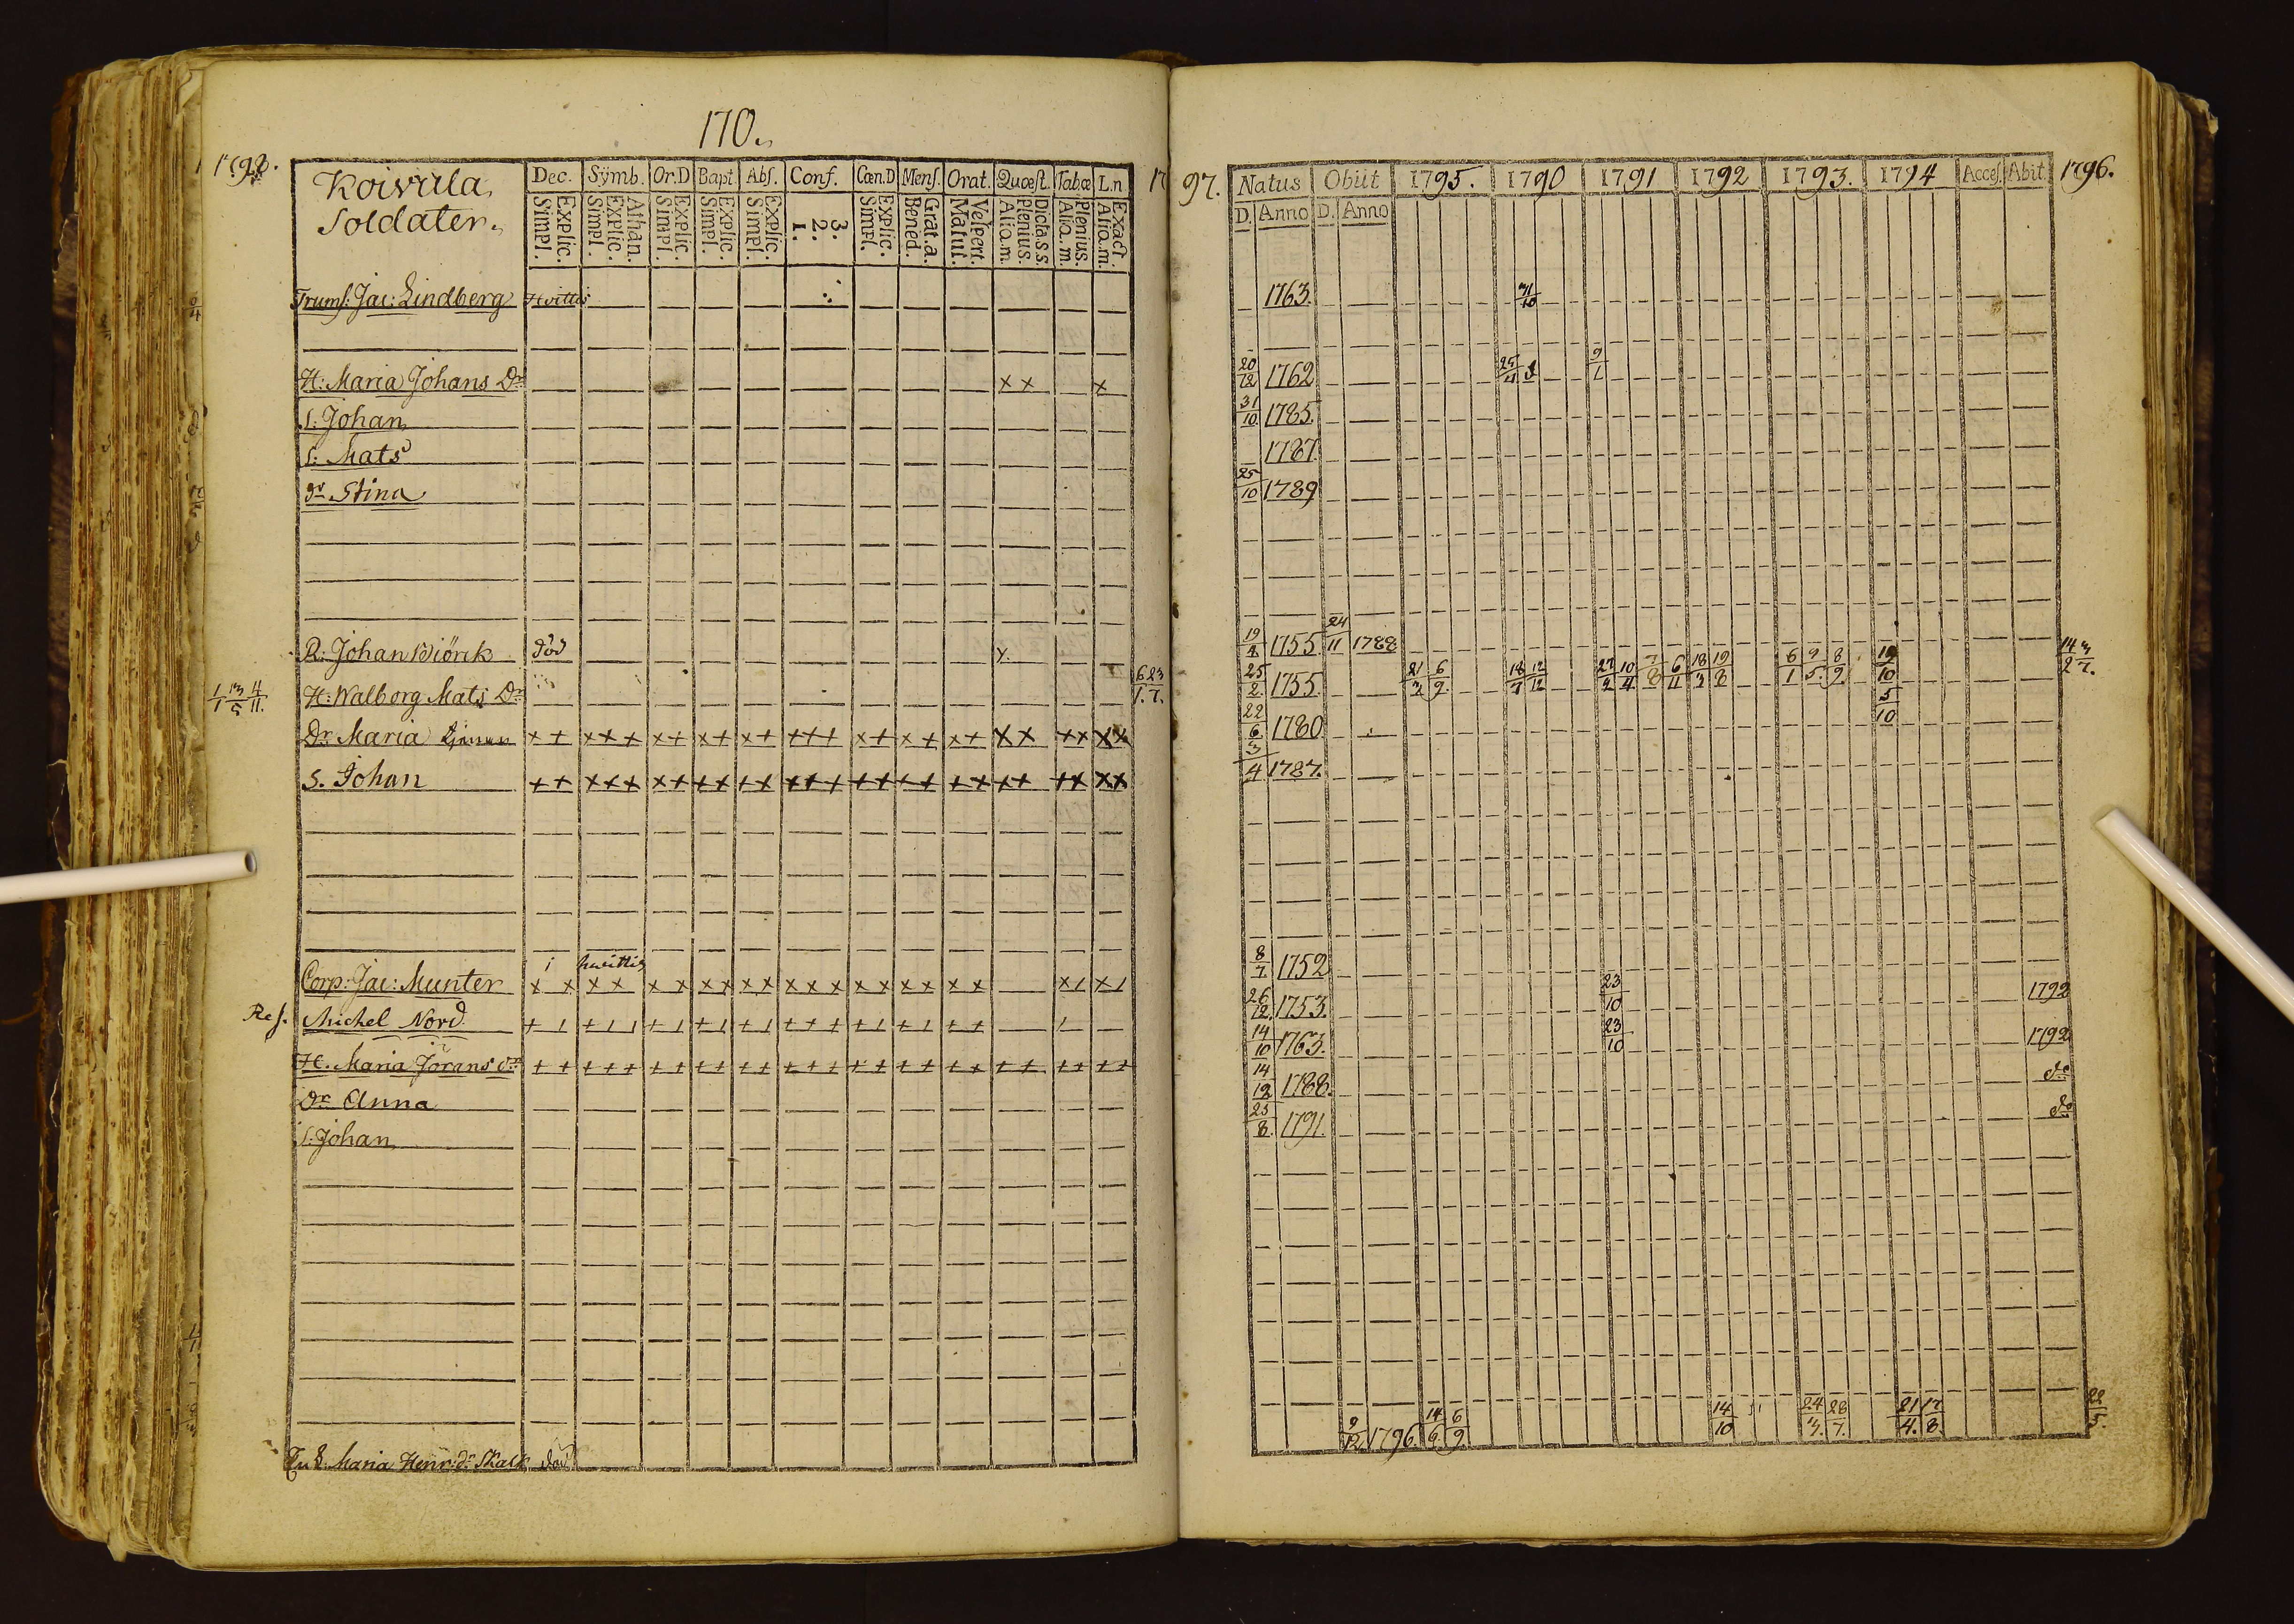 170.
1798.
Koivula
Soldater.
Dec. Symb. Or.D Bapt. Abs. Conf. Cœn.D Mens. Orat. Quœst. Tabœ L.n
Explic. Simpl.
Athan. Explic. Simpl.
Explic. Simpl.
Explic. Simpl.
Explic. Simpl.
3. 2. 1.
Explic. Simpl.
Grat. a. Bened.
Vespert. Matut.
Dicta s.s. Plenius. Aliq.m.
Plenius. Aliq.m.
Exact. Aliq.m.
Trums: Jac: Lindberg Hvittis
H: Maria Johans Dr x x x
S. Johan
S: Mats
dr Stina
R: Johan Biörk död
H: Walborg Mats Dr
1/1 13/5 11/11.
Dr Maria x x x x x x x x x x x x x x x x x x x x x x x x x x
S. Johan x x x x x x x x x x x x x x x x x x x x x x x x x x
i hwittis
Corp: Jac: Munter x x x x x x x x x x x x x x x x x x x
Michel Nord
H. Maria Jörans dr
Dr Anna
S. Johan
Maria Henr: dr Skack död
1797.
Natus Obiit 1795. 1790 1791 1792 1793. 1794 Acces. Abit. 1796.
D. Anno D. Anno
1763. 31/10
20/12 1762 25/4 9/1
31/10 1785.
1787
25/10 1789
19/4 1755 24/11 1788
6/1. 23/7.
25/2. 1755. 21/3 6/9. 18/7 12/12 27/2 10/4 7/8 6/11 18/3 19/8 6/1 9/5. 8/9. 19/10 14/2 3/7.
22/6 1780 5/10
3/4 1787.
8/7 1752
26/12. 1753. 23/10 1792
14/10 1763. 23/10 1792
14/12 1788. do
25/8. 1791. do
9/12 1796. 14/6. 6/9. 14/10 24/3. 28/7. 21/4. 17/8. 22/5.